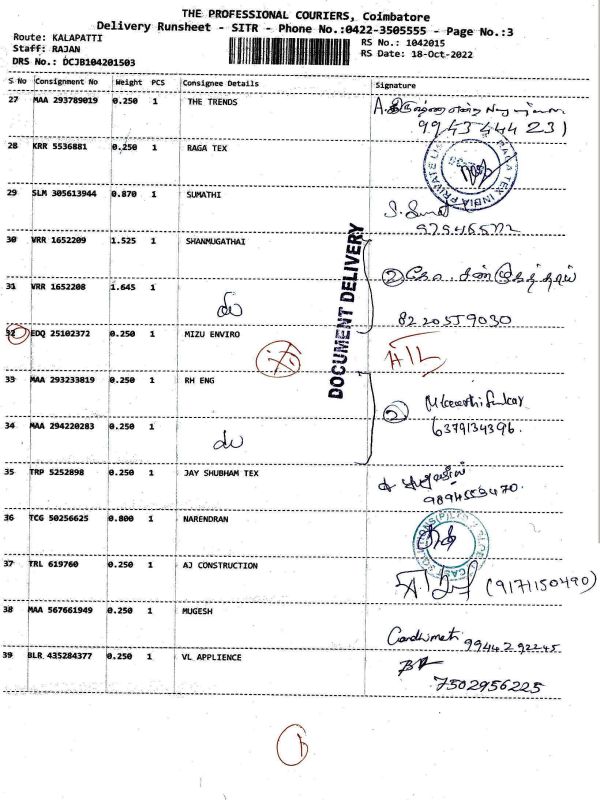 THE PROFESSIONAL COURIERS, Coimbatore
Delivery Runsheet - SITR - Phone No.:0422-3505555 - Page No.:3
Route: KALAPATTI
Staff: RAJAN
DRS No.: DCJB104201503
RS No.: 1042015
RS Date: 18-Oct-2022
S No Consignment No Weight PCS Consignee Details Signature
27 MAA 293789019 0.250 1 THE TRENDS
9943444231
28 KRR 5536881 0.250 1 RAGA TEX
RAGA TEX INDIA PRIVATE
29 SLM 305613944 0.870 1 SUMATHI
30 VRR 1652209 1.525 1 SHANMUGATHAI
31 VRR 1652208 1.645 1
8220559030
32 EDQ 25102372 0.250 1 MIZU ENVIRO
DOCUMENT DELIVERY
33 MAA 293233819 0.250 1 RH ENG
2
6379134396
34 MAA 294220283 0.250 1
35 TRP 5252898 0.250 1 JAY SHUBHAM TEX
36 TCG 50256625 0.800 1 NARENDRAN
37 TRL 619760 0.250 1 AJ CONSTRUCTION
(9171150490)
38 MAA 567661949 0.250 1 MUGESH
Gandhimati 9944292245
39 BLR 435284377 0.250 1 VL APPLIENCE
7502956225